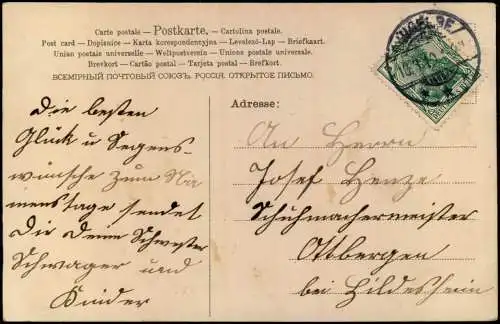 Carte postale - Postkarte. - Cartolina postale.
Post card - Dopisnice - Karta korespondencyjna - Levelező-Lap - Briefkaart.
Union postale universelle. - Weltpostverein - Unione postale universale.
Brevkort - Cartão postal - Tarjeta postal - Brefkort.
ВСЕМІРНЫЙ ПОЧТОВЫЙ СОЮЗЪ. РОССІЯ. ОТКРЫТОЕ ПИСЬМО.
Die besten
Glück u Segens-
wünsche zum Na
menstage sendet
Dir Deine Schwester
Schwager und
Kinder
Adresse:
An Herrn
Josef Henze
Schuhmachermeister
Ottbergen
bei Hildesheim